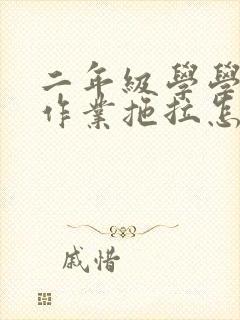 二年級學學
作業拖拉怎
戚惜